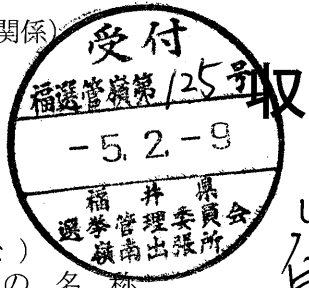 関係)
受付
福選管嶺第125号
収
-5.2.-9
福井県
選挙管理委員会
嶺南出張所
)
の名称